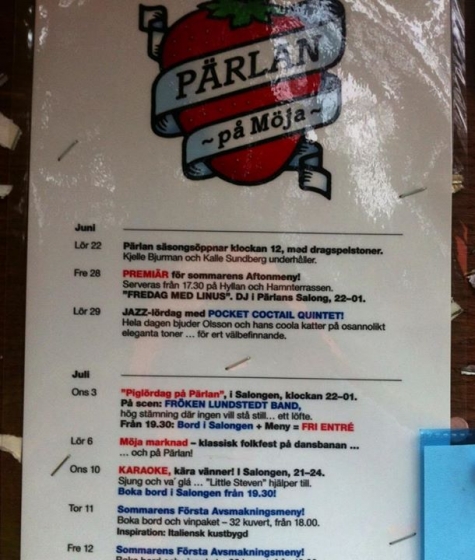 PÄRLAN
~på Möja~
Juni
Lör 22 Pärlan säsongsöppnar klockan 12, med dragspelstoner.
Kjelle Bjurman och Kalle Sundberg underhåller.
Fre 28 PREMIÄR för sommarens Aftonmeny!
Serveras från 17.30 på Hyllan och Hamnterrassen.
"FREDAG MED LINUS". DJ i Pärlans Salong, 22–01.
Lör 29 JAZZ-lördag med POCKET COCTAIL QUINTET!
Hela dagen bjuder Olsson och hans coola katter på osannolikt
eleganta toner ... för ert välbefinnande.
Juli
Ons 3 "Piglördag på Pärlan", i Salongen, klockan 22–01.
På scen: FRÖKEN LUNDSTEDT BAND,
hög stämning där ingen vill stå still... ett löfte.
Från 19.30: Bord i Salongen + Meny = FRI ENTRÉ
Lör 6 Möja marknad – klassisk folkfest på dansbanan ...
... och på Pärlan!
Ons 10 KARAOKE, kära vänner! I Salongen, 21–24.
Sjung och va' glá ... "Little Steven" hjälper till.
Boka bord i Salongen från 19.30!
Tor 11 Sommarens Första Avsmakningsmeny!
Boka bord och vinpaket – 32 kuvert, från 18.00.
Inspiration: Italiensk kustbygd
Fre 12 Sommarens Första Avsmakningsmeny!